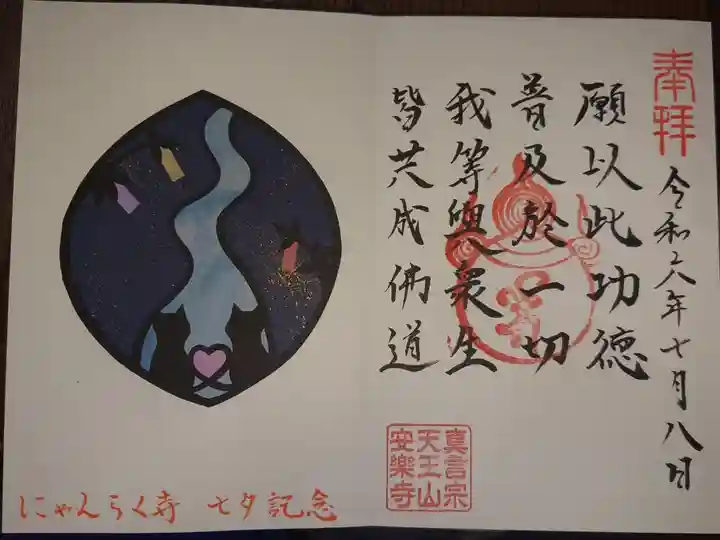 奉拝
令和六年七月八日
願以此功徳
普及於一切
我等與衆生
皆共成佛道
真言宗
天王山
安樂寺
にゃんらく寺 七夕記念